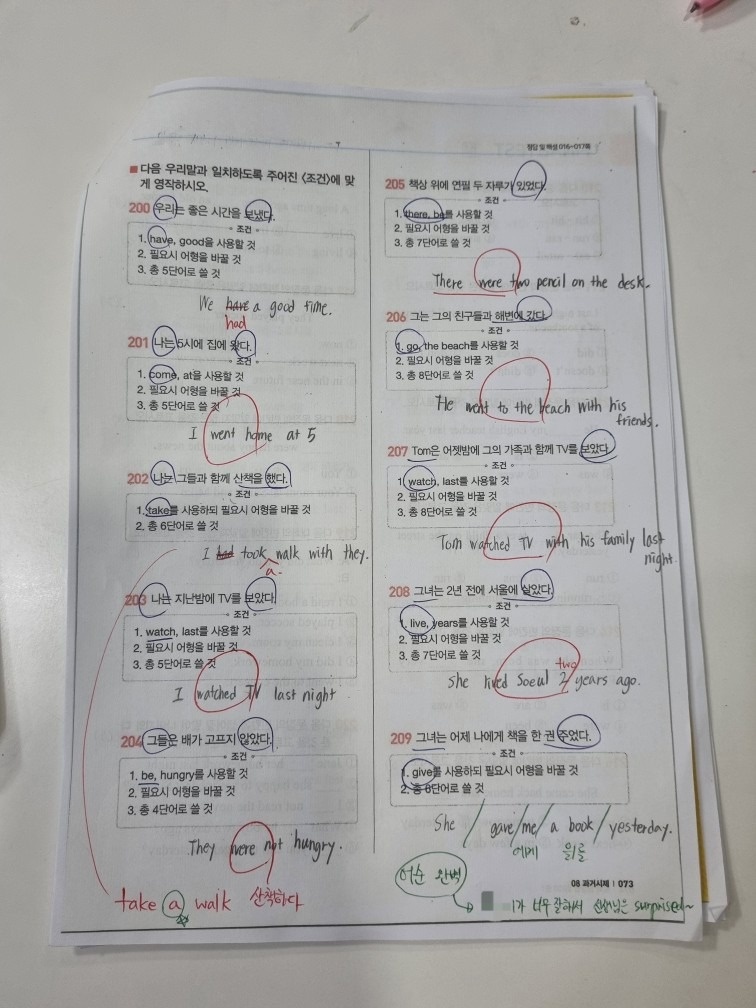 정답 및 해설 016~017쪽
■ 다음 우리말과 일치하도록 주어진 <조건>에 맞
게 영작하시오.
200 우리는 좋은 시간을 보냈다.
조건
1. have, good을 사용할 것
2. 필요시 어형을 바꿀 것
3. 총 5단어로 쓸 것
We have a good time.
had
201 나는 5시에 집에 왔다.
조건
1. come, at을 사용할 것
2. 필요시 어형을 바꿀 것
3. 총 5단어로 쓸 것
I went home at 5
202 나는 그들과 함께 산책을 했다.
조건
1. take를 사용하되 필요시 어형을 바꿀 것
2. 총 6단어로 쓸 것
I had took walk with they.
a.
203 나는 지난밤에 TV를 보았다.
조건
1. watch, last를 사용할 것
2. 필요시 어형을 바꿀 것
3. 총 5단어로 쓸 것
I watched TV last night
204 그들은 배가 고프지 않았다.
조건
1. be, hungry를 사용할 것
2. 필요시 어형을 바꿀 것
3. 총 4단어로 쓸 것
They were not hungry.
take a walk 산책하다
205 책상 위에 연필 두 자루가 있었다.
조건
1. there, be를 사용할 것
2. 필요시 어형을 바꿀 것
3. 총 7단어로 쓸 것
There were two pencil on the desk.
206 그는 그의 친구들과 해변에 갔다.
조건
1. go, the beach를 사용할 것
2. 필요시 어형을 바꿀 것
3. 총 8단어로 쓸 것
He went to the beach with his
friends.
207 Tom은 어젯밤에 그의 가족과 함께 TV를 보았다.
조건
1. watch, last를 사용할 것
2. 필요시 어형을 바꿀 것
3. 총 8단어로 쓸 것
Tom watched TV with his family last
night.
208 그녀는 2년 전에 서울에 살았다.
조건
1. live, years를 사용할 것
2. 필요시 어형을 바꿀 것
3. 총 7단어로 쓸 것
two
She lived Soeul 2 years ago.
209 그녀는 어제 나에게 책을 한 권 주었다.
조건
1. give를 사용하되 필요시 어형을 바꿀 것
2. 총 6단어로 쓸 것
She / gave / me / a book / yesterday.
에게 을를
어순 완벽
08 과거시제 | 073
가 너무 잘해서 선생님은 surprised~